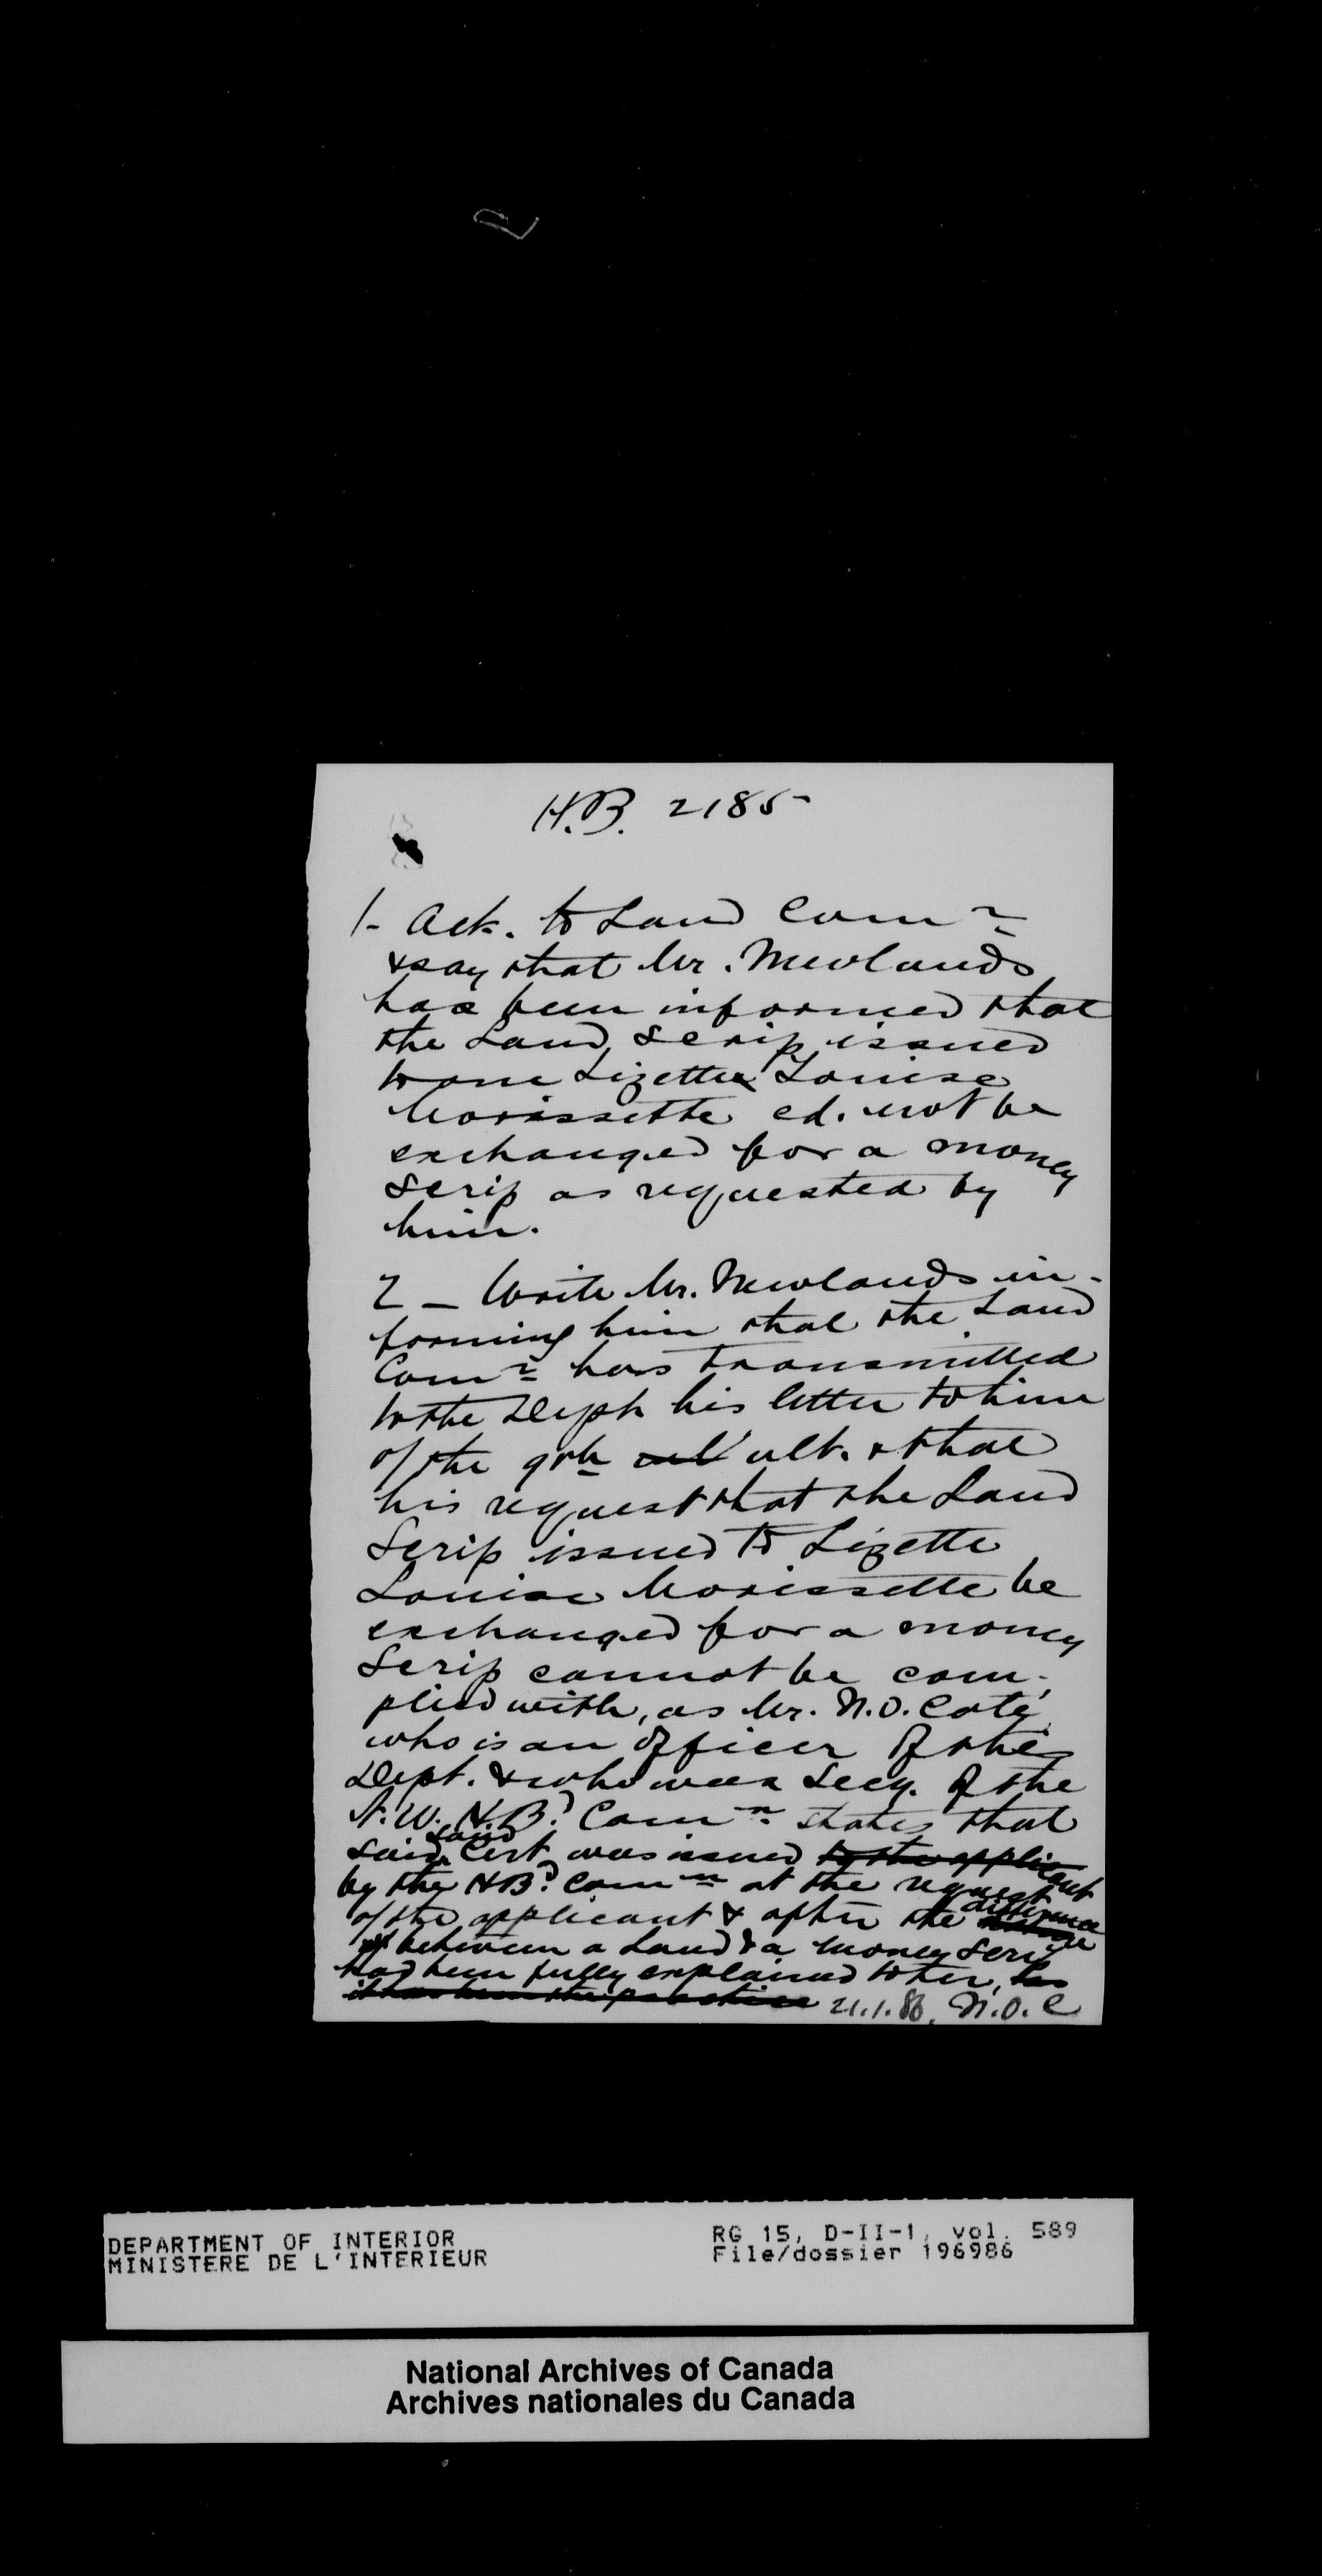 H.B. 2185
1- Ack. to Land Comr
& say that Mr. Newlands
has been informed that
the Land Scrip issued
to one Lizette Louise
Morissette cd. not be
exchanged for a money
Scrip as requested by
him.
2 - Write Mr. Newlands in-
forming him that the Land
Comr has transmitted
to the Dept his letter to him
of the 9th ult. & that
his request that the Land
Scrip issued to Lizette
Louise Morissette be
exchanged for a money
Scrip cannot be com-
plied with, as Mr. N.O. Coté
who is an officer of the
Dept. & who was Secy. of the
N.W. H.Bd Comn states that
said land Cert. was issued to the applicant
by the HBd Comn at the request
of the applicant & after the difference
between a Land & a money Scrip
had been fully explained to her,
it has been the practice 21.1.86. N.O.C
DEPARTMENT OF INTERIOR
MINISTERE DE L'INTERIEUR
RG 15, D-II-1, vol. 589
File/dossier 196986
National Archives of Canada
Archives nationales du Canada